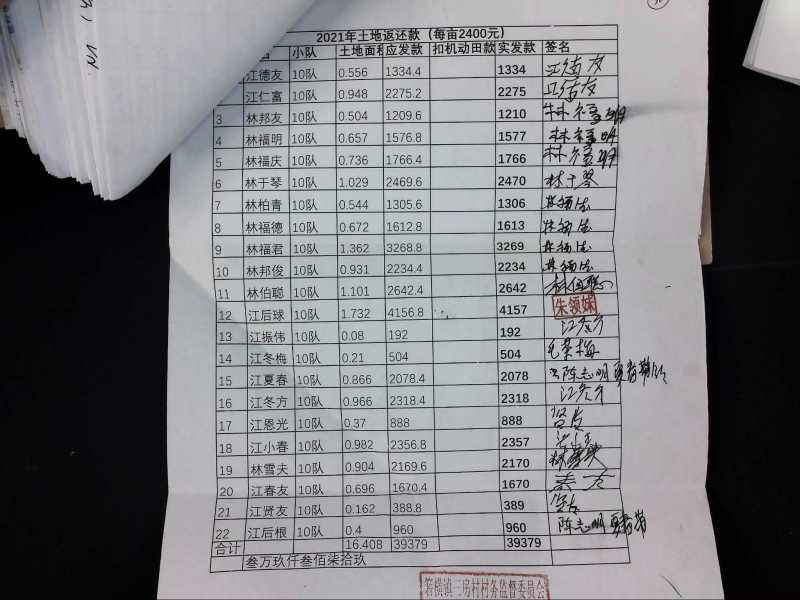 VN.
2021年土地返还款（每亩2400元）
小队 土地面积 应发款 扣机动田款 实发款 签名
江德友 10队 0.556 1334.4 1334 江德友
江仁富 10队 0.948 2275.2 2275 江德友
3 林邦友 10队 0.504 1209.6 1210 林福明
4 林福明 10队 0.657 1576.8 1577 林福明
5 林福庆 10队 0.736 1766.4 1766 林福明
6 林于琴 10队 1.029 2469.6 2470 林于琴
7 林柏青 10队 0.544 1305.6 1306
8 林福德 10队 0.672 1612.8 1613
9 林福君 10队 1.362 3268.8 3269
10 林邦俊 10队 0.931 2234.4 2234
11 林伯聪 10队 1.101 2642.4 2642 林伯聪
12 江后球 10队 1.732 4156.8 4157 朱领娴
13 江振伟 10队 0.08 192 192 江冬方
14 江冬梅 10队 0.21 504 504
15 江夏春 10队 0.866 2078.4 2078 陈志明 夏春
16 江冬方 10队 0.966 2318.4 2318 江冬方
17 江恩光 10队 0.37 888 888 贤友
18 江小春 10队 0.982 2356.8 2357
19 林雪夫 10队 0.904 2169.6 2170 林雪夫
20 江春友 10队 0.696 1670.4 1670
21 江贤友 10队 0.162 388.8 389 贤友
22 江后根 10队 0.4 960 960 陈志明 夏春
合计 16.408 39379 39379
叁万玖仟叁佰柒拾玖
箬横镇三房村村务监督委员会